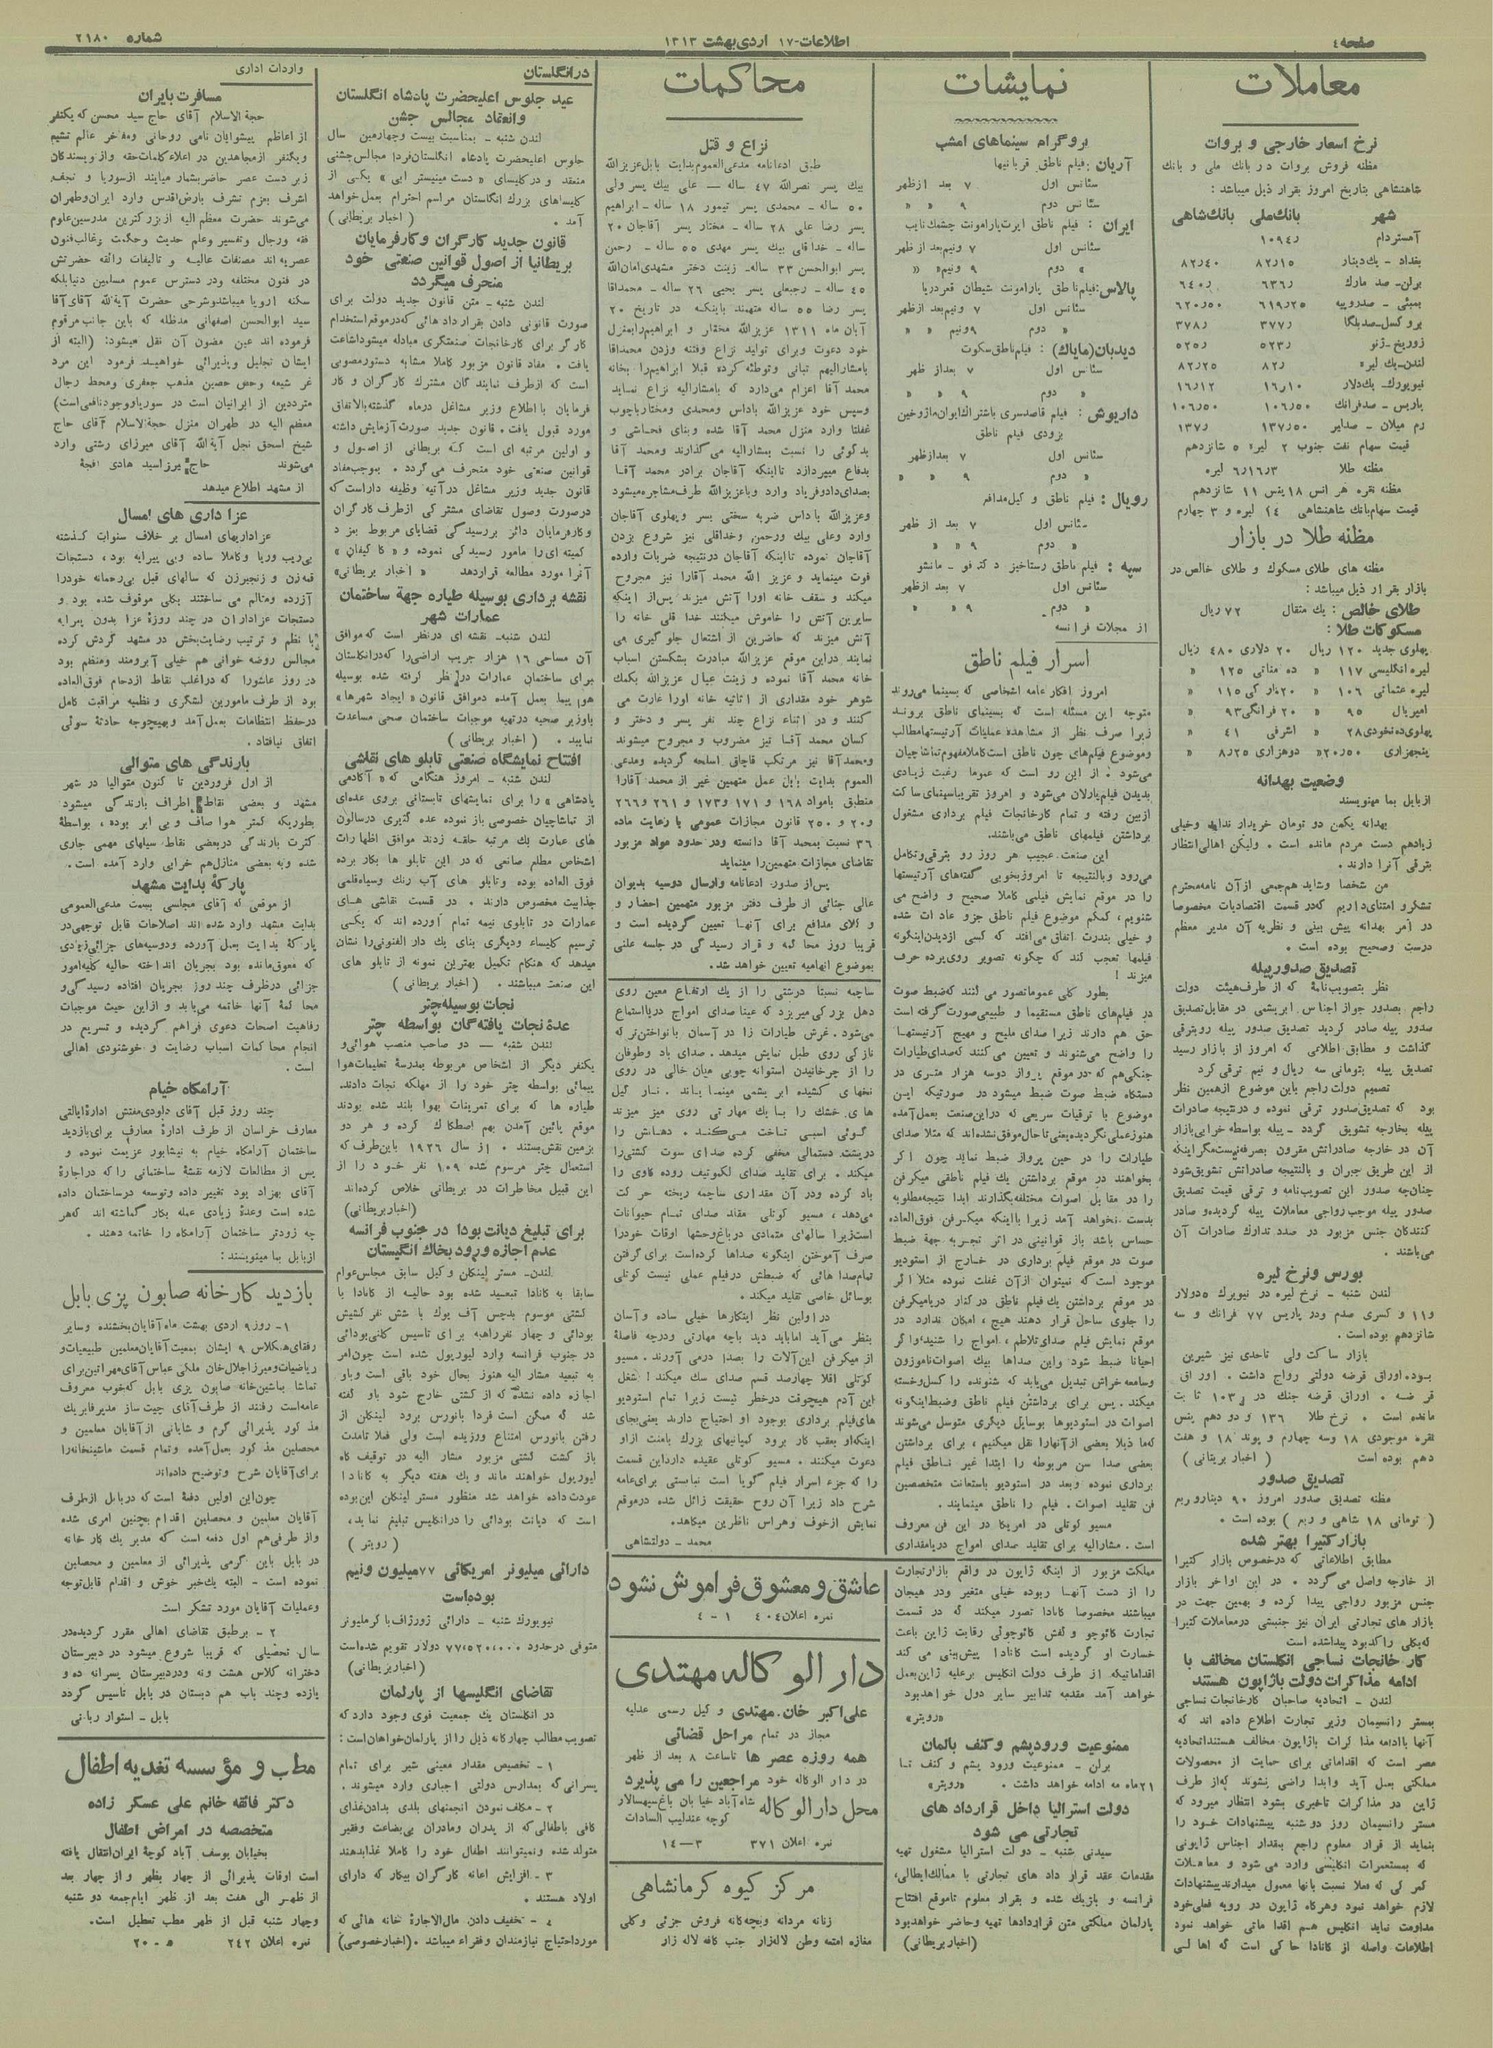 صفحه ٤
اطلاعات - ١٧ اردی‌بهشت ١٣١٣
شماره ٢١٨٠
معاملات
نرخ اسعار خارجی و بروات
مظنه فروش بروات در بانك ملی و بانك
شاهنشاهی بتاریخ امروز بقرار ذیل میباشد :
شهر بانك‌ملی بانك‌شاهی
آمستردام ١٠٩٤ر
بغداد - یك‌دینار ٨٢ر١٥ ٨٢ر٤٠
برلن - صد مارك ٦٣٦ر ٦٤٠ر
بمبئی - صدروپیه ٦١٩ر٢٥ ٦٢٠ر٥٠
بروکسل - صدبلگا ٣٧٧ر ٣٧٨ر
زوریخ - ژنو ٥٢٣ر ٥٢٥ر
لندن - یك لیره ٨٢ر ٨٢ر٢٥
نیویورك - یك‌دلار ١٦ر١٠ ١٦ر١٢
پاریس - صدفرانك ١٠٦ر٥٠ ١٠٦ر٥٠
رم میلان - صدلیر ١٣٧ر٥٠ ١٣٧ر
قیمت سهام نفت جنوب ٢ لیره ٥ شانزدهم
مظنه طلا ٦ر١٦ر٣ لیره
مظنه نقره هر انس ١٨ پنس ١١ شانزدهم
قیمت سهام بانك شاهنشاهی ١٤ لیره و ٣ چهارم
مظنه طلا در بازار
مظنه های طلای مسکوك و طلای خالص در
بازار بقرار ذیل میباشد :
طلای خالص : یك مثقال ٧٢ ریال
مسکوکات طلا :
پهلوی جدید ١٢٠ ریال ٢٠ دلاری ٤٨٠ ریال
لیره انگلیسی ١١٧ « ده مناتی ١٢٥ «
لیره عثمانی ١٠٦ « ٢٠ مارکی ١١٥ «
امپریال ٩٥ « ٢٠ فرانکی ٩٣ «
پهلوی ده نخودی ٢٨ « اشرفی ٤١ «
پنجهزاری ٢٠ر٥٠ « دوهزاری ٨ر٢٥ «
وضعیت بهدانه
ازبابل بما مینویسند
بهدانه یکمن دو تومان خریدار ندارد وخیلی
زیادهم دست مردم مانده است . ولیکن اهالی انتظار
ترقی آنرا دارند .
من شخصا وشاید هم‌جمعی از آن نامه محترم
تشکر و امتنان داریم که در قسمت اقتصادیات مخصوصا
در امر بهدانه پیش بینی و نظریه آن مدیر معظم
درست وصحیح بوده است .
تصدیق صدورپیله
نظر بتصویب‌نامهٔ که از طرف هیئت دولت
راجع بصدور جواز اجناس ابریشمی در مقابل تصدیق
صدور پیله صادر گردید تصدیق صدور پیله روبترقی
گذاشت و مطابق اطلاعی که امروز از بازار رسید
تصدیق پیله بتومانی سه ریال و نیم ترقی کرد
تصمیم دولت راجع باین موضوع از همین نظر
بود که تصدیق صدور ترقی نموده و در نتیجه صادرات
پیله بخارجه تشویق گردد - پیله بواسطه خرابی بازار
آن در خارجه صادراتش مقرون بصرفه نیست مگر اینکه
از این طریق جبران و بالنتیجه صادراتش تشویق شود
چنان‌چه صدور این تصویب‌نامه و ترقی قیمت تصدیق
صدور پیله موجب رواجی معاملات پیله گردیده و صادر
کنندگان جنس مزبور در صدد تدارك صادرات آن
می‌باشند .
بورس ونرخ لیره
لندن شنبه - نرخ لیره در نیویرك ٥ دولار
و ١١ و کسری صدم ودر پاریس ٧٧ فرانك و سه
شانزدهم بوده است .
بازار ساکت ولی تاحدی نیز شیرین
بوده اوراق قرضه دولتی رواج داشت . اوراق
قرضه . اوراق قرضه جنك در ١٠٣ر ثابت
مانده است . نرخ طلا ١٣٦ و دو دهم پنس
نقره موجودی ١٨ وسه چهارم و پوند ١٨ و هفت
دهم بوده است ( اخبار بریتانی )
تصدیق صدور
مظنه تصدیق صدور امروز ٩٠ دینار و ربع
( تومانی ١٨ شاهی و ربع ) بوده است .
بازارکتیرا بهتر شده
مطابق اطلاعاتی که در خصوص بازار کتیرا
از خارجه واصل می‌گردد . در این اواخر بازار
جنس مزبور رواجی پیدا کرده و بهمین جهت در
بازار های تجارتی ایران نیز جنبشی در معاملات کتیرا
که بکلی راکد بود پیدا شده است
کارخانجات نساجی انگلستان مخالف با
ادامه مذاکرات دولت باژاپون هستند
لندن - اتحادیه صاحبان کارخانجات نساجی
بمستر رانسیمان وزیر تجارت اطلاع داده اند که
آنها با ادامه مذاکرات باژاپون مخالف هستند اتحادیه
مصر است که اقداماتی برای حمایت از محصولات
مملکتی بعمل آید وابدا راضی نشوند که از طرف
ژاپن در مذاکرات تاخیری بشود انتظار میرود که
مستر رانسیمان روز دوشنبه پیشنهادات خود را
بنماید از قرار معلوم راجع بمقدار اجناس ژاپونی
که بمستعمرات انگلیسی وارد می شود و معاملات
گمرکی که فعلا نسبت بانها معمول میدارند پیشنهادات
لازم خواهد نمود وهرگاه ژاپون در رویه فعلی خود
مداومت نماید انگلیس هم اقداماتی خواهد نمود
اطلاعات واصله از کانادا حاکی است که اهالی
نمایشات
پروگرام سینماهای امشب
آریان : فیلم ناطق قربانیها
سئانس اول ٧ بعد ازظهر
سئانس دوم ٩ « «
ایران : فیلم ناطق اپرت پارامونت چشمك نایب
سئانس اول ٧ ونیم بعد از ظهر
« دوم ٩ ونیم « «
پالاس : فیلم ناطق پارامونت شیطان قعر دریا
سئانس اول ٧ ونیم بعد ازظهر
« دوم ٩ ونیم « «
دیدبان (مایاك) : فیلم ناطق سکوت
سئانس اول ٧ بعد از ظهر
« دوم ٩ « «
داریوش : فیلم قاصد سری باشتراك ایوان ماژوخین
بزودی فیلم ناطق
سئانس اول ٧ بعد ازظهر
« دوم ٩ « «
رویال : فیلم ناطق وکیل مدافع
سئانس اول ٧ بعد از ظهر
« دوم ٩ « «
سپه : فیلم ناطق رستاخیز دکتر فو - مانشو
سئانس اول ٧ بعد ازظهر
« دوم ٩ « «
از مجلات فرانسه
اسرار فیلم ناطق
امروز افکار عامه اشخاصی که بسینما می‌روند
متوجه این مسئله است که بسینمای ناطق بروند
زیرا صرف نظر از مشاهده عملیات آرتیستها مطالب
وموضوع فیلم‌های چون ناطق است کاملا مفهوم تماشاچیان
می‌شود . از این رو است که عموما رغبت زیادی
بدیدن فیلم پارلان می‌شود و امروز تقریبا سینمای ساکت
ازبین رفته و تمام کارخانجات فیلم برداری مشغول
برداشتن فیلمهای ناطق می‌باشند .
این صنعت عجیب هر روز رو بترقی وتکامل
می‌رود وبالنتیجه تا امروز بخوبی گفته‌های آرتیستها
را در موقع نمایش فیلمی کاملا صحیح و واضح می
شنویم ، کم‌کم موضوع فیلم ناطق جزو عادات شده
و خیلی بندرت اتفاق می‌افتد که کسی از دیدن اینگونه
فیلمها تعجب کند که چگونه تصویر روی پرده حرف
میزند !
بطور کلی عموما تصور می کنند که ضبط صوت
در فیلم‌های ناطق مستقیما و طبیعی صورت گرفته است
حق هم دارند زیرا صدای ملیح و مهیج آرتیستها
را واضح می‌شنوند و تعیین می کنند که صدای طیارات
جنگی هم که در موقع پرواز دوسه هزار متری در
دستگاه ضبط صوت ضبط میشود در صورتیکه این
موضوع با ترقیات سریعی که در این صنعت بعمل آمده
هنوز عملی نگردیده یعنی تا حال موفق نشده اند که مثلا صدای
طیارات را در حین پرواز ضبط نماید چون اگر
بخواهند در موقع برداشتن یك فیلم ناطقی میکرفن
را در مقابل اصوات مختلفه بگذارند ابدا نتیجه مطلوبه
بدست نخواهد آمد زیرا با اینکه میکرفن فوق العاده
حساس باشد باز قوانینی در اثر تجربه جهة ضبط
صوت در موقع فیلم برداری در خارج از استودیو
موجود است که نمیتوان از آن غفلت نموده مثلا اگر
در موقع برداشتن یك فیلم ناطق در کنار دریا میکرفن
را جلوی ساحل قرار دهند هیچ ، امکان ندارد در
موقع نمایش فیلم صدای تلاطم ، امواج را شنید و اگر
احیانا ضبط شود واین صداها بیك اصوات ناموزون
وسامعه خراش تبدیل می‌یابد که شنونده را کسل وخسته
میکند . پس برای برداشتن فیلم ناطق وضبط اینگونه
اصوات در استودیوها بوسایل دیگری متوسل می‌شوند
که ما ذیلا بعضی از آنها را نقل میکنیم ، برای برداشتن
بعضی صدا سن مربوطه را ابتدا غیر ناطق فیلم
برداری نموده وبعد در استودیو باستعانت متخصصین
فن تقلید اصوات . فیلم را ناطق مینمایند .
مسیو کوتلی در امریکا در این فن معروف
است . مشارالیه برای تقلید صدای امواج دریا مقداری
مملکت مزبور از اینکه ژاپون در واقع بازار تجارت
را از دست آنها ربوده خیلی متغیر ودر هیجان
میباشند مخصوصا کانادا تصور میکند که در قسمت
تجارت کائوچو و کفش کائوچوئی رقابت ژاپن باعث
خسارت او گردیده است کانادا پیش‌بینی می کند
اقداماتیکه از طرف دولت انگلیس برعلیه ژاپن بعمل
خواهد آمد مقدمه تدابیر سایر دول خواهد بود
«رویتر»
ممنوعیت ورودپشم وکنف بالمان
برلن - ممنوعیت ورود پشم و کنف تا
٢١ ماه مه ادامه خواهد داشت . «رویتر»
دولت استرالیا داخل قرارداد های
تجارتی می شود
سیدنی شنبه - دولت استرالیا مشغول تهیه
مقدمات عقد قرار داد های تجارتی با ممالك ایطالی ،
فرانسه و بلژیك شده و بقرار معلوم تا موقع افتتاح
پارلمان مملکتی متن قراردادها تهیه وحاضر خواهد بود
(اخبار بریطانی)
محاکمات
نزاع و قتل
طبق ادعانامه مدعی العموم بدایت بابل عزیزالله
بیك پسر نصرالله ٤٧ ساله — علی بیك پسر ولی
٥٠ ساله - محمدی پسر تیمور ١٨ ساله - ابراهیم
پسر رضا علی ٢٨ ساله - مختار پسر آقاجان ٢٠
ساله - خداقلی بیك پسر مهدی ٥٥ ساله - رحمن
پسر ابوالحسن ٣٣ ساله - زینت دختر مشهدی امان‌الله
٤٥ ساله - رجبعلی پسر یحیی ٢٦ ساله - محمدآقا
پسر رضا ٥٥ ساله متهمند باینکه در تاریخ ٢٠
آبان ماه ١٣١١ عزیزالله مختار و ابراهیم را بمنزل
خود دعوت وبرای تولید نزاع وفتنه وزدن محمدآقا
بامشارالیهم تبانی وتوطئه کرده قبلا ابراهیم را بخانه
محمد آقا اعزام می‌دارد که بامشارالیه نزاع نماید
وسپس خود عزیزالله باداس ومحمدی ومختار باچوب
غفلتا وارد منزل محمد آقا شده وبنای فحاشی و
بدگوئی را نسبت بمشارالیه می گذارند ومحمد آقا
بدفاع میپردازد تااینکه آقاجان برادر محمد آقا
بصدای داد وفریاد وارد وبا عزیزالله طرف مشاجره میشود
وعزیزالله باداس ضربه سختی بسر وپهلوی آقاجان
وارد وعلی بیك ورحمن وخداقلی نیز شروع بزدن
آقاجان نموده تااینکه آقاجان در نتیجه ضربات وارده
فوت مینماید و عزیز الله محمد آقارا نیز مجروح
میکند و سقف خانه اورا آتش میزند پس از اینکه
سایرین آتش را خاموش میکنند خدا قلی خانه را
آتش میزند که حاضرین از اشتعال جلوگیری می
نمایند در این موقع عزیزالله مبادرت بشکستن اسباب
خانه محمد آقا نموده و زینت عیال عزیزالله بکمك
شوهر خود مقداری از اثاثیه خانه اورا غارت می
کنند و در اثناء نزاع چند نفر پسر و دختر و
کسان محمد آقا نیز مضروب و مجروح میشوند
ومحمدآقا نیز مرتکب قاچاق اسلحه گردیده ومدعی
العموم بدایت بابل عمل متهمین غیر از محمد آقارا
منطبق بامواد ١٦٨ و ١٧١ و ١٧٣ و ٢٦١ و ٢٦٦
و ٢٠ و ٢٥٠ قانون مجازات عمومی با رعایت ماده
٣٦ نسبت بمحمد آقا دانسته ودر حدود مواد مزبور
تقاضای مجازات متهمین را مینماید
پس از صدور ادعانامه وارسال دوسیه بدیوان
عالی جنائی از طرف دفتر مزبور متهمین احضار و
وکلای مدافع برای آنها تعیین گردیده است و
قریبا روز محاکمه و قرار رسیدگی در جلسه علنی
بموضوع اتهامیه تعیین خواهد شد .
ساچمه نسبتا درشتی را از یك ارتفاع معین روی
دهل بزرگی میریزد که عینا صدای امواج دریا استماع
می‌شود . غرش طیارات را در آسمان بانواختن تر که
نازکی روی طبل نمایش میدهد . صدای باد وطوفان
را از چرخانیدن استوانه چوبی میان خالی در روی
نخهای کشیده ابریشمی مینمایاند . نارگیل
های خشك را با یك مهارتی روی میز میزند
گوئی اسبی تاخت می‌کند . دهانش را
در پشت دستمالی مخفی کرده صدای سوت کشتی را
میکند . برای تقلید صدای لکموتیف روده گاوی را
باد کرده ودر آن مقداری ساچمه ریخته حرکت
می‌دهد ، مسیو کوتلی مقلد صدای تمام حیوانات
است زیرا سالهای متمادی در باغ وحشها اوقات خود را
صرف آموختن اینگونه صداها کرده است برای گرفتن
تمام صدا هائی که ضبطش در فیلم عملی نیست کوتلی
بوسائل خاصی تقلید میکند .
در اولین نظر اینکارها خیلی ساده و آسان
بنظر می‌آید اما باید دید باچه مهارتی ودرچه فاصلهٔ
از میکرفن این آلات را بصدا درمی آورند . مسیو
کوتلی اقلا چهارصد قسم صدای سك میکند ! شغل
این آدم هیچوقت در خطر نیست زیرا تمام استودیو
های فیلم برداری بوجود او احتیاج دارند یعنی بجای
اینکه او بعقب کار برود کمپانیهای بزرك بامنت ازاو
دعوت میکنند . مسیو کوتلی عقیده دارد این قسمت
را که جزء اسرار فیلم گویا است نبایستی برای عامه
شرح داد زیرا آن روح حقیقت زائل شده در موقع
نمایش از خوف وهراس ناظرین میکاهد .
محمد - دولتشاهی
عاشق و معشوق فراموش نشود
نمره اعلان ٤٠٤ ١ - ٤
دارالوکاله مهتدی
علی‌اکبر خان . مهتدی و کیل رسمی عدلیه
مجاز در تمام مراحل قضائی
همه روزه عصر ها تاساعت ٨ بعد از ظهر
در دار الوکاله خود مراجعین را می پذیرد
محل دارالوکاله شاه‌آباد خیابان باغ سپهسالار
کوچه عندلیب السادات
نمره اعلان ٣٧١ ٣ — ١٤
مرکز گیوه کرمانشاهی
زنانه مردانه وبچه‌گانه فروش جزئی وکلی
مغازه امتعه وطن لاله‌زار جنب کافه لاله زار
درانگلستان
عید جلوس اعلیحضرت پادشاه انگلستان
وانعقاد مجالس جشن
لندن شنبه - بمناسبت بیست وچهارمین سال
جلوس اعلیحضرت پادشاه انگلستان فردا مجالس جشنی
منعقد و در کلیسای « دست مینیستر ابی » یکی از
کلیساهای بزرك انگلستان مراسم احترام بعمل خواهد
آمد . ( اخبار بریطانی )
قانون جدید کارگران وکارفرمایان
بریطانیا از اصول قوانین صنعتی خود
منحرف میگردد
لندن شنبه - متن قانون جدید دولت برای
صورت قانونی دادن بقرار داد هائی که در موقع استخدام
کارگر برای کارخانجات صنعتگری مبادله میشود اشاعت
یافت . مفاد قانون مزبور کاملا مشابه دستور مصوبی
است که از طرف نمایندگان مشترك کارگران و کار
فرمایان با اطلاع وزیر مشاغل در ماه گذشته بالاتفاق
مورد قبول یافت . قانون جدید صورت آزمایش داشته
و اولین مرتبه ای است که بریطانی از اصول و
قوانین صنعتی خود منحرف می گردد . بموجب مفاد
قانون جدید وزیر مشاغل در آتیه وظیفه دار است که
در صورت وصول تقاضای مشترکی از طرف کارگران
وکارفرمایان دائر بررسیدگی قضایای مربوط بمزد
کمیته ای را مامور رسیدگی نموده و « تا کیفان »
آنرا مورد مطالعه قراردهد « اخبار بریطانی»
نقشه برداری بوسیله طیاره جهة ساختمان
عمارات شهر
لندن شنبه . نقشه ای درنظر است که موافق
آن مساحی ١٦ هزار جریب اراضی را که در انگلستان
برای ساختمان عمارات در نظر گرفته شده بوسیله
هواپیما بعمل آمده وموافق قانون « ایجاد شهرها »
باوزیر صحیه در تهیه موجبات ساختمان صحی مساعدت
نمایند . ( اخبار بریطانی )
افتتاح نمایشگاه صنعتی تابلو های نقاشی
لندن شنبه - امروز هنگامی که « آکادمی
پادشاهی » را برای نمایشهای تابستانی بروی عده‌ای
از تماشاچیان خصوصی باز نموده عده کثیری در سالون
های عمارت یك مرتبه حلقه زدند موافق اظهارات
اشخاص مطلع صانعی که در این تابلو ها بکار برده
فوق العاده بوده وتابلو های آب رنك وسیاه قلمی
جذابیت مخصوص دارند . در قسمت نقاشی های
عمارات در تابلوی نیمه تمام آورده اند که یکی
ترسیم کلیساء ودیگری بنای یك دار الفنونی را نشان
میدهد که هنگام تکمیل بهترین نمونه از تابلو های
این صنعت میباشند . ( اخبار بریطانی )
نجات بوسیله چتر
عدهٔ نجات یافته‌گان بواسطه چتر
لندن شنبه — دو صاحب منصب هوائی و
یکنفر دیگر از اشخاص مربوطه بمدرسهٔ تعلیمات هوا
پیمائی بواسطه چتر خود را از مهلکه نجات دادند .
طیاره ها که برای تمرینات بهوا بلند شده بودند
موقع پائین آمدن بهم اصطکاك کرده و هر دو
بزمین نقش بستند . از سال ١٩٢٦ باین طرف که
استعمال چتر مرسوم شده ١٠٩ نفر خود را از
این قبیل مخاطرات در بریطانی خلاص کرده‌اند
(اخبار بریطانی)
برای تبلیغ دیانت بودا در جنوب فرانسه
عدم اجازه ورود بخاك انگلیستان
لندن - مستر لینکلن وکیل سابق مجلس عوام
سابقا به کانادا تبعید شده بود حالیه از کانادا با
کشتی موسوم بدچس آف یوك با شش نفر کشیش
بودائی و چهار نفر راهبه برای تاسیس کلنی بودائی
در جنوب فرانسه وارد لیورپول شده است چون امر
به تبعید مشار الیه هنوز بحال خود باقی است وباو
اجازه داده نشده که از کشتی خارج شود باو گفته
شد که ممکن است فردا بانورس برود لینکلن از
رفتن بانورس امتناع ورزیده است ولی فعلا تامدت
بازگشت کشتی مزبور مشار الیه در توقیف گاه
لیورپول خواهند ماند و یك هفته دیگر به کانادا
عودت داده خواهد شد منظور مستر لینکلن این بوده
است که دیانت بودائی را در انگلیس تبلیغ نماید ،
( رویتر )
دارائی میلیونر امریکائی ٧٧ میلیون ونیم
بوده‌است
نیویورك شنبه - دارائی ژورژاف باکر ملیونر
متوفی درحدود ٧٧،٥٢٠،٠٠٠ دولار تقویم شده است
(اخبار بریطانی)
تقاضای انگلیسها از پارلمان
در انگلستان یك جمعیت قوی وجود دارد که
تصویب مطالب چهارگانه ذیل را از پارلمان خواهان است :
١ - تخصیص مقدار معینی شیر برای تمام
پسرانی که بمدارس دولتی اجباری وارد میشوند .
٢ - مکلف نمودن انجمنهای بلدی بدادن غذای
کافی باطفالی که از پدران ومادران بی‌بضاعت وفقیر
متولد شده ونمیتوانند اطفال خود را کاملا غذا بدهند
٣ - افزایش اعانه کارگران بیکار که دارای
اولاد هستند .
٤ - تخفیف دادن مال الاجارهٔ خانه هائی که
مورد احتیاج نیازمندان وفقراء میباشد . (اخبار خصوصی)
واردات اداری
مسافرت بایران
حجة الاسلام آقای حاج سید محسن که یکنفر
از اعاظم پیشوایان نامی روحانی ومفاخر عالم تشیع
ویکنفر از مجاهدین در اعلاء کلمات حقه و از نویسندگان
زبر دست عصر حاضر بشمار میایند از سوریا و نجف
اشرف بعزم تشرف بارض اقدس وارد ایران وطهران
می‌شوند حضرت معظم الیه از بزرگترین مدرسین علوم
فقه ورجال وتفسیر وعلم حدیث وحکمت و غالب فنون
عصریه اند مصنفات عالیه و تالیفات رائقه حضرتش
در فنون مختلفه ودر دسترس عموم مسلمین دنیا بلکه
سکنه اروپا میباشد وشرحی حضرت آیةالله آقای آقا
سید ابوالحسن اصفهانی مدظله که باین جانب مرقوم
فرموده اند عین مضمون آن نقل میشود : (البته از
ایشان تجلیل وپذیرائی خواهید فرمود این مرد
غر شیعه وحص حصین مذهب جعفری ومحط رجال
مترددین از ایرانیان است در سوریا وجود نافعی است)
معظم الیه در طهران منزل حجةالاسلام آقای حاج
شیخ اسحق نجل آیةالله آقای میرزای رشتی وارد
می‌شوند
از مشهد اطلاع میدهد
عزاداری های امسال
عزاداریهای امسال بر خلاف سنوات گذشته
بی‌ریب وریا وکاملا ساده وبی پیرایه بود ، دستجات
قمه‌زن و زنجیرزن که سالهای قبل بی‌رحمانه خود را
آزرده ومتالم می ساختند بکلی موقوف شده بود و
دستجات عزاداران در چند روزهٔ عزا بدون پیرایه
با نظم و ترتیب رضایت‌بخش در مشهد گردش کرده
مجالس روضه خوانی هم خیلی آبرومند ومنظم بود
در روز عاشورا که در اغلب نقاط ازدحام فوق العاده
بود از طرف مامورین لشگری و نظمیه مراقبت کامل
در حفظ انتظامات بعمل آمد وبهیچوجه حادثهٔ سوئی
اتفاق نیافتاد .
بارندگی های متوالی
از اول فروردین تا کنون متوالیا در شهر
مشهد و بعضی نقاط اطراف بارندگی میشود
بطوریکه کمتر هوا صاف و بی ابر بوده ، بواسطهٔ
کثرت بارندگی در بعضی نقاط سیلهای مهمی جاری
شده وبه بعضی منازل هم خرابی وارد آمده است .
پارکهٔ بدایت مشهد
از موقعی که آقای مجلسی بسمت مدعی العمومی
بدایت مشهد وارد شده اند اصلاحات قابل توجهی در
پارکهٔ بدایت بعمل آورده ودوسیه‌های جزائی زیادی
که معوق مانده بود بجریان انداخته حالیه کلیه امور
جزائی در ظرف چند روز بجریان افتاده رسیدگی و
محاکمهٔ آنها خاتمه می‌یابد و از این حیث موجبات
رفاهیت اصحاب دعوی فراهم گردیده و تسریع در
انجام محاکمات اسباب رضایت و خوشنودی اهالی
است .
آرامگاه خیام
چند روز قبل آقای داودی مفتش ادارهٔ ایالتی
معارف خراسان از طرف ادارهٔ معارف برای بازدید
ساختمان آرامگاه خیام به نیشابور عزیمت نموده و
پس از مطالعات لازمه نقشهٔ ساختمانی را که در اجارهٔ
آقای بهزاد بود تغییر داده وتوسعه در ساختمان داده
شده است وعدهٔ زیادی عمله بکار گماشته اند که هر
چه زودتر ساختمان آرامگاه را خاتمه دهند .
ازبابل بما مینویسند :
بازدید کارخانه صابون پزی بابل
١- روز ٩ اردی بهشت ماه آقایان بخشنده وسایر
رفقای همکلاس ٩ ایشان بمعیت آقایان معلمین طبیعیات و
ریاضیات ومیرزا جلال‌خان ملکی عباس آقای مهراتین برای
تماشا بماشین‌خانه صابون پزی بابل که خوب معروف
عامه است رفتند از طرف آقای چیت ساز مدیر فابریك
مذکور پذیرائی گرم و شایانی از آقایان معلمین و
محصلین مذکور بعمل آمده وتمام قسمت ماشینخانه را
برای آقایان شرح و توضیح داده‌اند
چون این اولین دفعهٔ است که در بابل از طرف
آقایان معلمین و محصلین اقدام بچنین امری شده
واز طرفی هم اول دفعه است که مدیر یك کارخانه
در بابل باین گرمی پذیرائی از معلمین و محصلین
نموده است - البته یك‌خبر خوش و اقدام قابل توجه
وعملیات آقایان مورد تشکر است
٢ - برطبق تقاضای اهالی مقرر گردیده در
سال تحصیلی که قریبا شروع میشود در دبیرستان
دخترانه کلاس هشت ونه ودر دبیرستان پسرانه ده و
یازده وچند باب هم دبستان در بابل تاسیس گردد
بابل - استوار ربانی
مطب و مؤسسه تغدیه اطفال
دکتر فائقه خانم علی عسکر زاده
متخصصه در امراض اطفال
بخیابان یوسف آباد کوچهٔ ایران انتقال یافته
است اوقات پذیرائی از چهار بظهر و از چهار بعد
از ظهر الی هفت بعد از ظهر ایام جمعه دوشنبه
وچهار شنبه قبل از ظهر مطب تعطیل است .
نمره اعلان ٢٤٢ ٥ - ٢٠